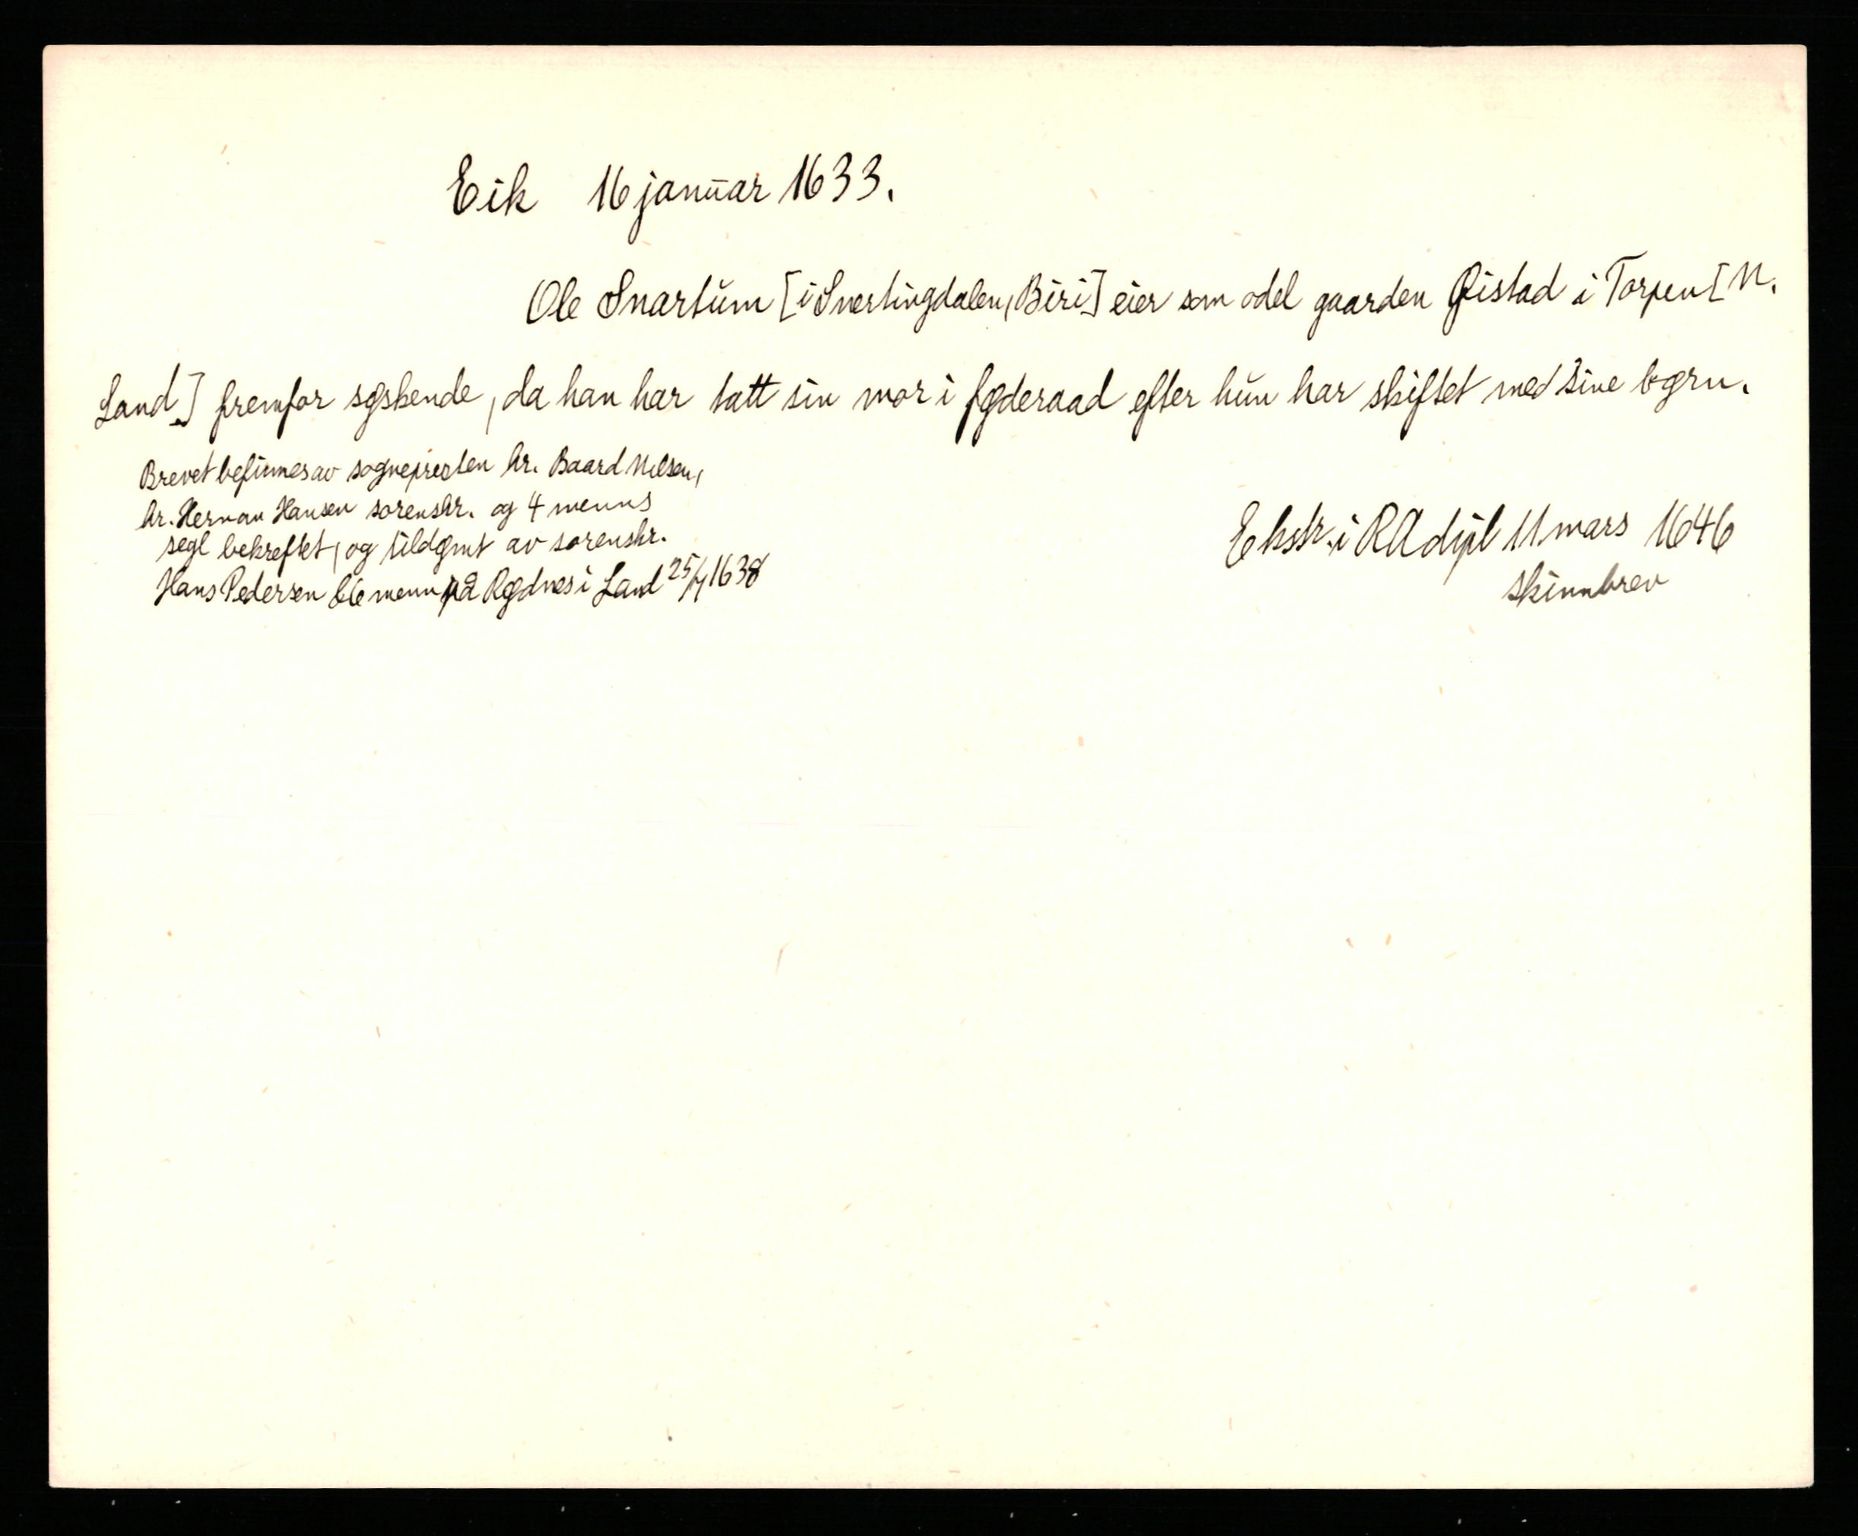 Eik 16 januar 1633.
Ole Snartum [i Snertingdalen, Biri] eier som odel gaarden Øistad i Torpen [N.
Land.] fremfor søskende, da han har tatt sin mor i føderaad efter hun har skiftet med sine børn.
Brevet befinnes av sognepresten hr. Baard Nilsen,
hr. Herman Hansen sorenskr. og 4 menns
segl bekreftet, og tildømt av sorenskr.
Hans Pedersen & 6 menn på Rødnes i Land 25/7 1638
Ekstr. i RA dipl 11 mars 1646
skinnbrev